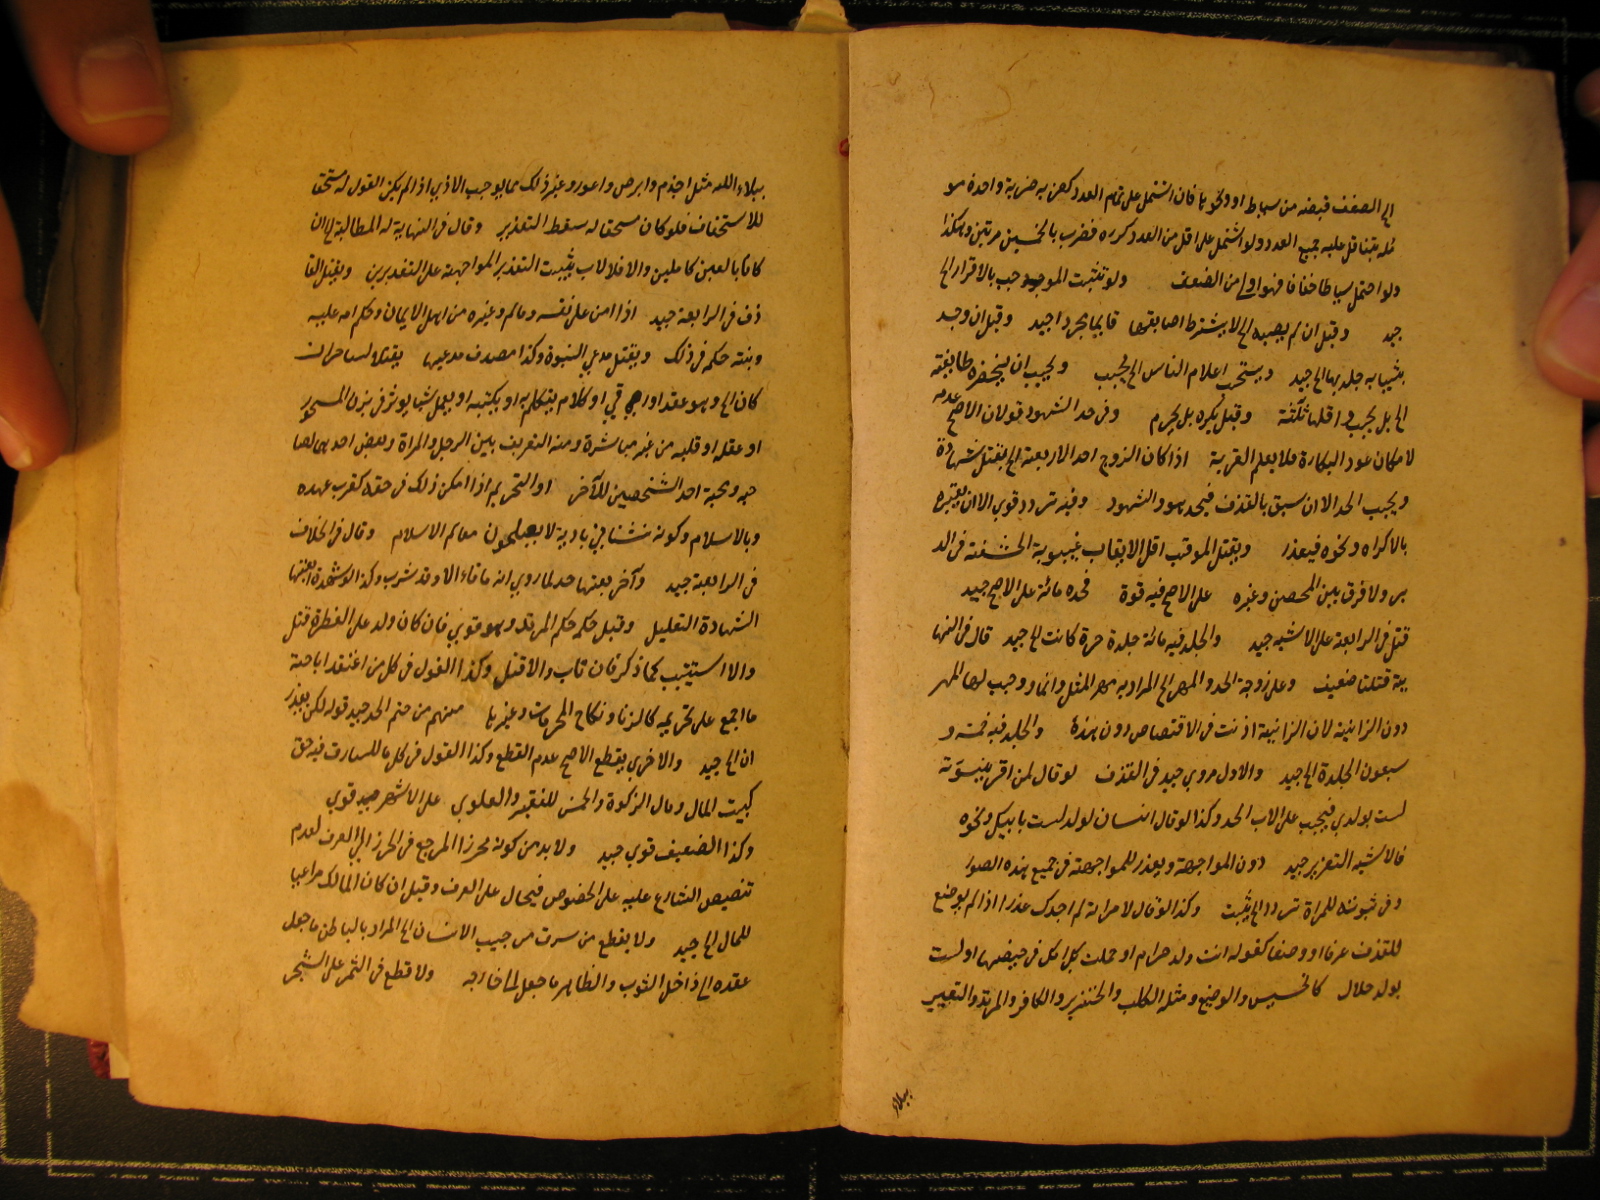 الى الضعف قبضه من سياط او ونحوها فان اشتمل على تمام العدد كفى به ضربة واحدة مو
لمه بقناقل عليه جميع العدد ولو اشتمل على اقل من العدد كرره فضرب بالخمسين مرتين وهكذا
ولو احتمل سياطا خفافا فهو اولى من الضعف ولو تثبت الموجب بالاقرار الى
جيد وقيل ان لم يصبه الى لا يشترط اصابتها قايما مجردا جيد وقيل ان وجد
بثيابه جلد بها الى جيد ويستحب اعلام الناس الى يجب ويجب ان يحضره طايفة
الى بل يجب واقلها ثلثة وقيل يكره بل يحرم وفى حد الشهود قولان الاصح عدمه
لامكان عود البكارة فلا يعلم الفرية اذا كان الزوج احد الاربعة الى يقتل شهادة
ويجب الحد الا ان سبق بالقذف فيحد هو والشهود وفيه تردد قوى الا ان يعتبره
بالاكراه ونحوه فيعذر ويقتل الموقب اقل الايقاب غيبوبة الحشفة فى الد
بر ولا فرق بين المحصن وغيره على الاصح فيه قوة فحده مائة على الاصح جيد
قتل فى الرابعة على الاشبه جيد والجلد فيه مائة جلدة حرة كانت الى جيد قال فى النها
ية قتلتا ضعيف وعلى زوجة الحد والمهر الى المراد به مهر المثل وانما وجب لها المهر
دون الزانية لان الزانية اذنت فى الاقتصاص دون هذه والجلد فيه خمسة و
سبعون الجلدة الى جيد والاول مروي جيد فى القذف لو قال لمن اقر ببنوته
لست بولدي فيجب على الاب الحد وكذا لو قال انسان لولد لست بابيك ونحوه
فالاشبه التعزير جيد دون المواجهة ويعذر للمواجهة فى جميع هذه الصور
وفى ثبوته للمراة تردد الى يثبت وكذا لو قال لامراته لم اجدك عذرا اذا لم يوضع
للقذف عرفا او وضعا كقوله انت ولد حرام او حملت بك امك فى حيضها او لست
بولد حلال كالخسيس والوضيع ومثله الكلب والخنزير والكافر والمرتد والتعيير
ببلاء
ببلاء الله مثل اجذم وابرص واعور وغير ذلك مما يوجب الاذي اذا لم يكن المقول له مستحقا
للاستخفاف فلو كان مستحقا له سقط التعذير وقال فى النهاية له المطالبة الى ان
كانا بالغين كاملين والا فلا لاب يثبت التعذير المواجهة على التقديرين ويقتل القا
ذف فى الرابعة جيد اذا امن على نفسه وماله وغيره من اهل الايمان وحكم امه عليه
وبنته حكمه فى ذلك ويقتل مدعي النبوة وكذا مصدق مدعيها يقتل الساحر ان
كان الى وهو عقد او رقي او كلام يتكلم به او يكتبه او يعمل شيا يوثر فى بدن المسحور
او عقله او قلبه من غير مباشرة ومنه التفريق بين الرجل والمراة وبغض احدهما لصا
حبه ومحبة احد الشخصين للآخر او التحريم اذا امكن ذلك فى حقه كقرب عهده
وبالاسلام وكونه نشأ فى بادية لا يعلمون معالم الاسلام وقال فى الخلاف
فى الرابعة جيد وآخر بقيئها حد لما روي انه ما قاءها الا وقد شرب وكذا لو شهدا بقيئها
الشهادة التعليل وقيل حكمه حكم المرتد وهو قوي فان كان ولد على الفطرة قتل
والا استتيب كما ذكر فان تاب والا قتل وكذا القول فى كل من اعتقد اباحة
ما اجمع على تحريمه كالزنا ونكاح المحرمات وغيرها منهم من حتم الحد جيد قوله لكن يعذر
ان الى جيد والاخري يقطع الاصح عدم القطع وكذا القول فى كل ما للسارق فيه حق
كبيت المال ومال الزكوة والخمس للفقير والعلوي على الاشهر جيد قوي
وكذا الضعيف قوي جيد ولا بد من كونه محرزا المرجع فى الحرز الى العرف لعدم
تنصيص الشارع عليه على الخصوص فيحال على العرف وقيل ان كان المالك مراعيا
للمال الى جيد ولا يقطع من سرق من جيب الانسان الى المراد بالباطن ما جعل
عقده الى داخل الثوب والظاهر ما جعل الى خارجه ولا قطع فى الثمر على الشجر